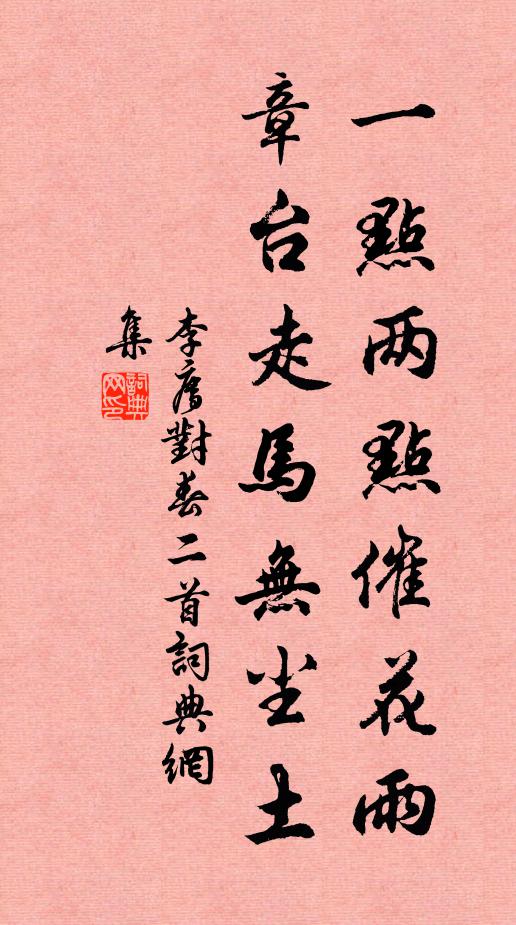 一點两點催花雨
章台走馬無尘土
李廌對春二首詞典網
集
詞典
网印